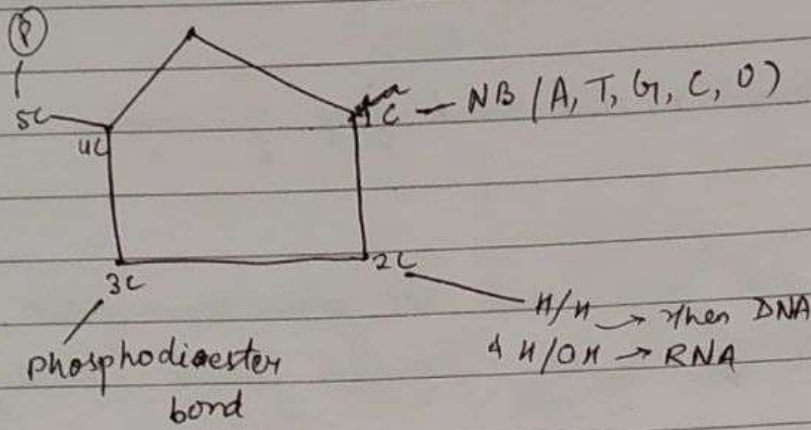 P
5C
4C
1C — NB (A, T, G, C, U)
3C
2C
H/H → then DNA
& H/OH → RNA
phosphodiester
bond